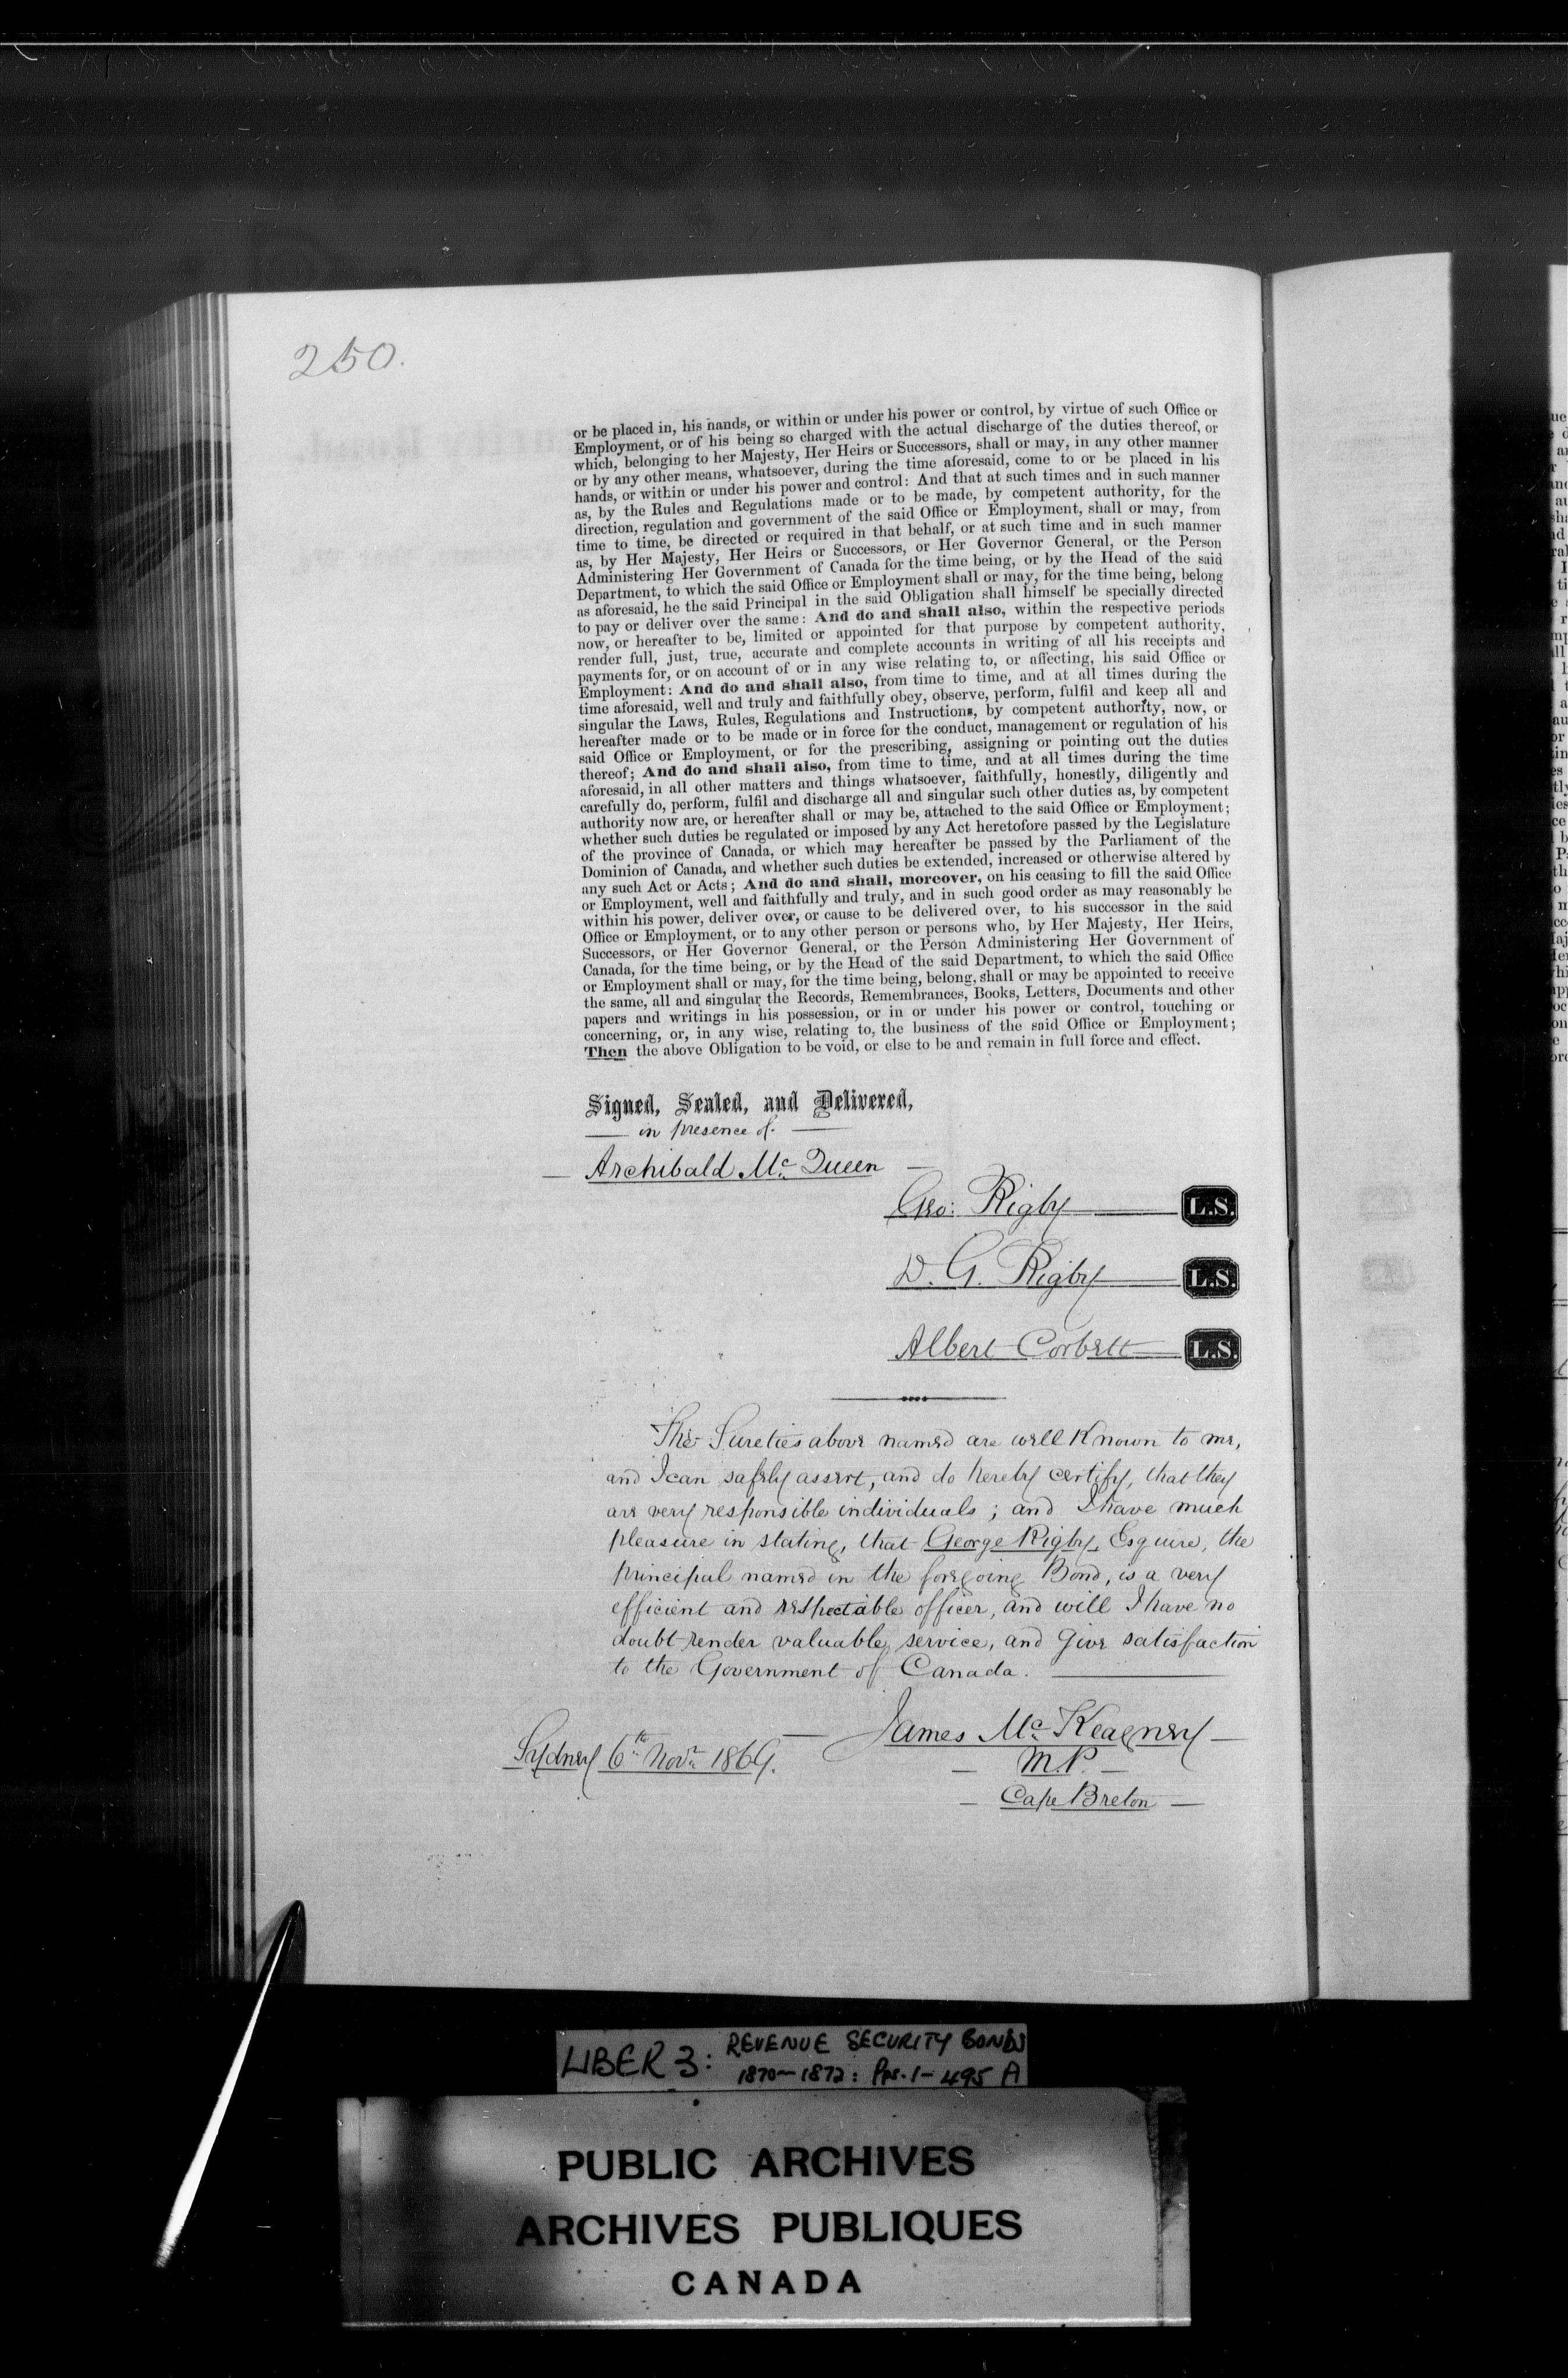 250.
or be placed in, his hands, or within or under his power or control, by virtue of such Office or
Employment, or of his being so charged with the actual discharge of the duties thereof, or
which, belonging to her Majesty, Her Heirs or Successors, shall or may, in any other manner
or by any other means, whatsoever, during the time aforesaid, come to or be placed in his
hands, or within or under his power and control: And that at such times and in such manner
as, by the Rules and Regulations made or to be made, by competent authority, for the
direction, regulation and government of the said Office or Employment, shall or may, from
time to time, be directed or required in that behalf, or at such time and in such manner
as, by Her Majesty, Her Heirs or Successors, or Her Governor General, or the Person
Administering Her Government of Canada for the time being, or by the Head of the said
Department, to which the said Office or Employment shall or may, for the time being, belong
as aforesaid, he the said Principal in the said Obligation shall himself be specially directed
to pay or deliver over the same: And do and shall also, within the respective periods
now, or hereafter to be, limited or appointed for that purpose by competent authority,
render full, just, true, accurate and complete accounts in writing of all his receipts and
payments for, or on account of or in any wise relating to, or affecting, his said Office or
Employment: And do and shall also, from time to time, and at all times during the
time aforesaid, well and truly and faithfully obey, observe, perform, fulfil and keep all and
singular the Laws, Rules, Regulations and Instructions, by competent authority, now, or
hereafter made or to be made or in force for the conduct, management or regulation of his
said Office or Employment, or for the prescribing, assigning or pointing out the duties
thereof; And do and shall also, from time to time, and at all times during the time
aforesaid, in all other matters and things whatsoever, faithfully, honestly, diligently and
carefully do, perform, fulfil and discharge all and singular such other duties as, by competent
authority now are, or hereafter shall or may be, attached to the said Office or Employment;
whether such duties be regulated or imposed by any Act heretofore passed by the Legislature
of the province of Canada, or which may hereafter be passed by the Parliament of the
Dominion of Canada, and whether such duties be extended, increased or otherwise altered by
any such Act or Acts; And do and shall, moreover, on his ceasing to fill the said Office
or Employment, well and faithfully and truly, and in such good order as may reasonably be
within his power, deliver over, or cause to be delivered over, to his successor in the said
Office or Employment, or to any other person or persons who, by Her Majesty, Her Heirs,
Successors, or Her Governor General, or the Person Administering Her Government of
Canada, for the time being, or by the Head of the said Department, to which the said Office
or Employment shall or may, for the time being, belong, shall or may be appointed to receive
the same, all and singular the Records, Remembrances, Books, Letters, Documents and other
papers and writings in his possession, or in or under his power or control, touching or
concerning, or, in any wise, relating to, the business of the said Office or Employment;
Then the above Obligation to be void, or else to be and remain in full force and effect.
Signed, Sealed, and Delivered,
— in presence of. —
— Archibald Mc Queen —
Geo: Rigby L.S.
D. G. Rigby L.S.
Albert Corbett L.S.
The Sureties above named are well Known to me,
and I can safely assert, and do hereby certify, that they
are very responsible individuals; and I have much
pleasure in stating, that George Rigby, Esquire, the
principal named in the foregoing Bond, is a very
efficient and respectable officer, and will I have no
doubt render valuable service, and give satisfaction
to the Government of Canada.
— James Mc Keagney —
Sydney 6th Novr 1869.
— M.P. —
— Cape Breton —
LIBER 3: REVENUE SECURITY BONDS
1870-1872: Pps. 1-495 A
PUBLIC ARCHIVES
ARCHIVES PUBLIQUES
CANADA